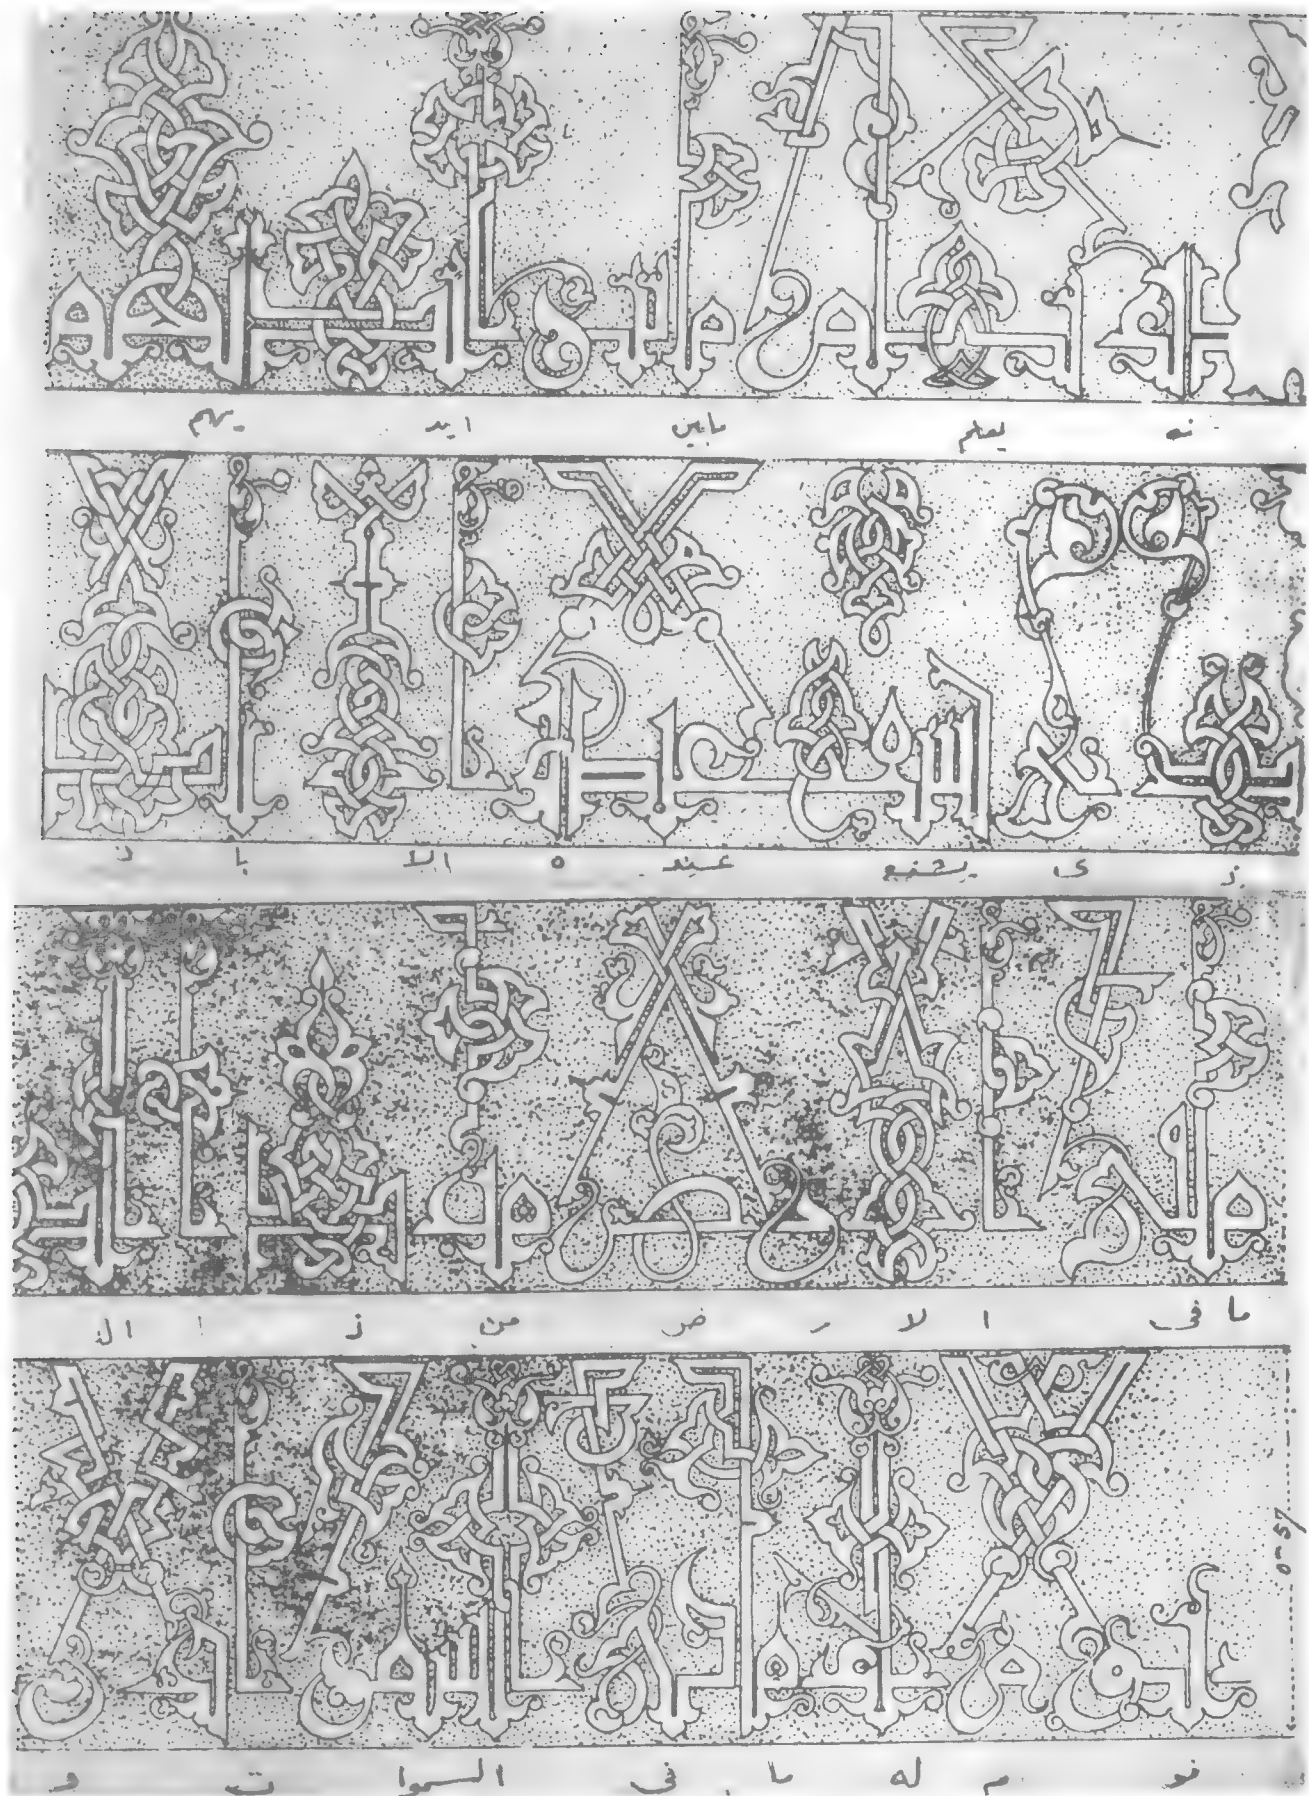 نه يعلم ما بين ايد يهم
ذ ى يشفع عند ه الا با ذ
ما فى ا لا ر ض من ذ ا ال
نو م له ما فى السموا ت و